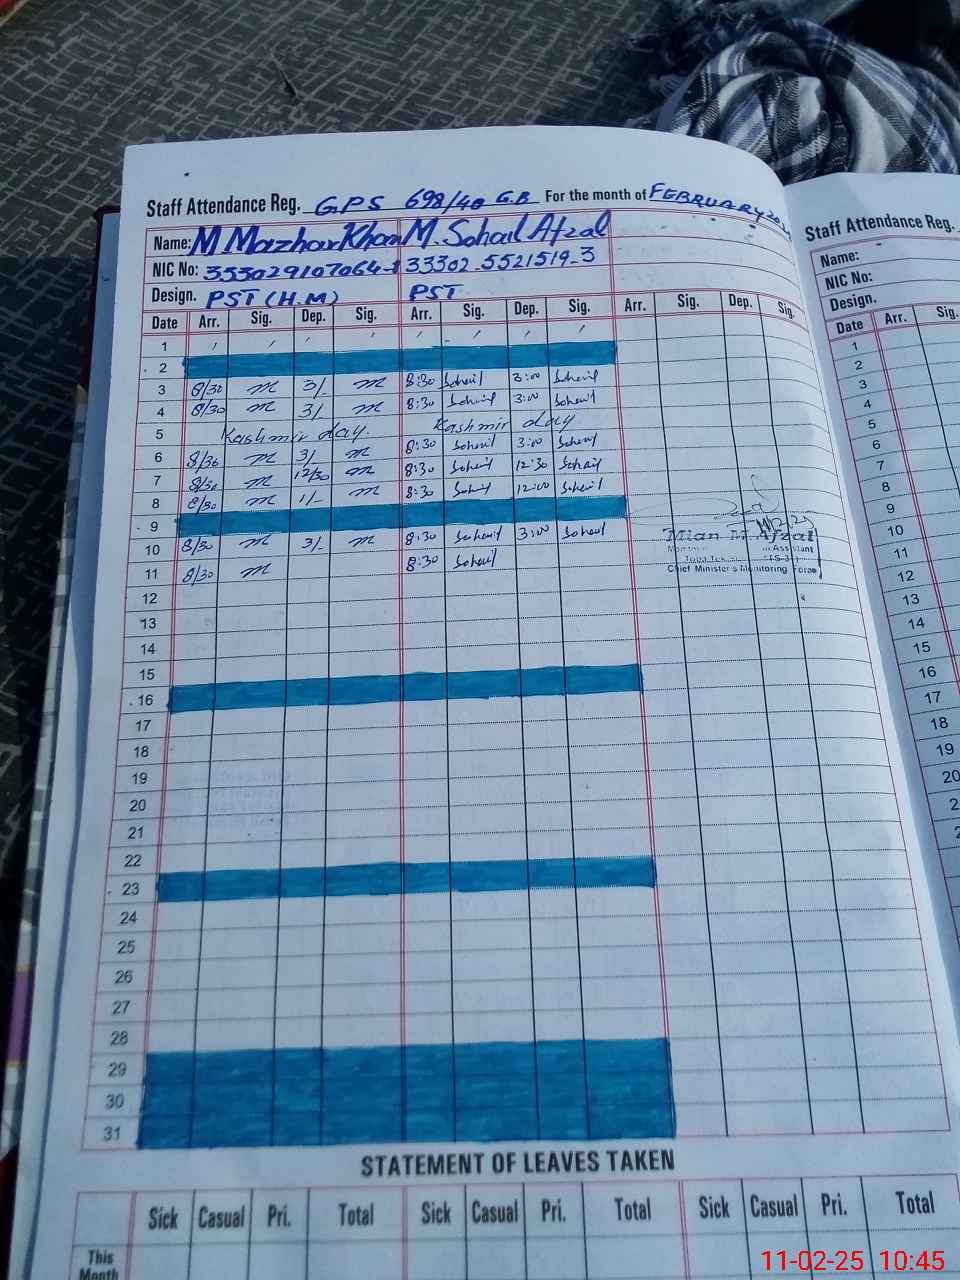 Staff Attendance Reg. G.P.S 698/40 G.B For the month of FEBRUARY
Name: M Mazhar Khan M. Sohail Afzal
NIC No: 353029107064-1 33302-5521519-3
Design. PST (H.M) PST
Date Arr. Sig. Dep. Sig. Arr. Sig. Dep. Sig. Arr. Sig. Dep. Sig.
1
2
3 8/30 m 3/- m 8:30 Sohail 3:00 Sohail
4 8/30 m 3/- m 8:30 Sohail 3:00 Sohail
5 Kashmir day. Kashmir day
6 8/30 m 3/ m 8:30 Sohail 3:00 Sohail
7 8/30 m 12/30 m 8:30 Sohail 12:30 Sohail
8 8/30 m 1/- m 8:30 Sohail 12:00 Sohail
9
10 8/30 m 3/- m 8:30 Sohail 3:00 Sohail
11 8/30 m 8:30 Sohail
12
13
14
15
16
17
18
19
20
21
22
23
24
25
26
27
28
29
30
31
Mian M Afzal
Assistant
Chief Minister's Monitoring Force
STATEMENT OF LEAVES TAKEN
Sick Casual Pri. Total Sick Casual Pri. Total Sick Casual Pri. Total
This
Month
Staff Attendance Reg.
Name:
NIC No:
Design.
Date Arr. Sig.
1
2
3
4
5
6
7
8
9
10
11
12
13
14
15
16
17
18
19
20
11-02-25 10:45